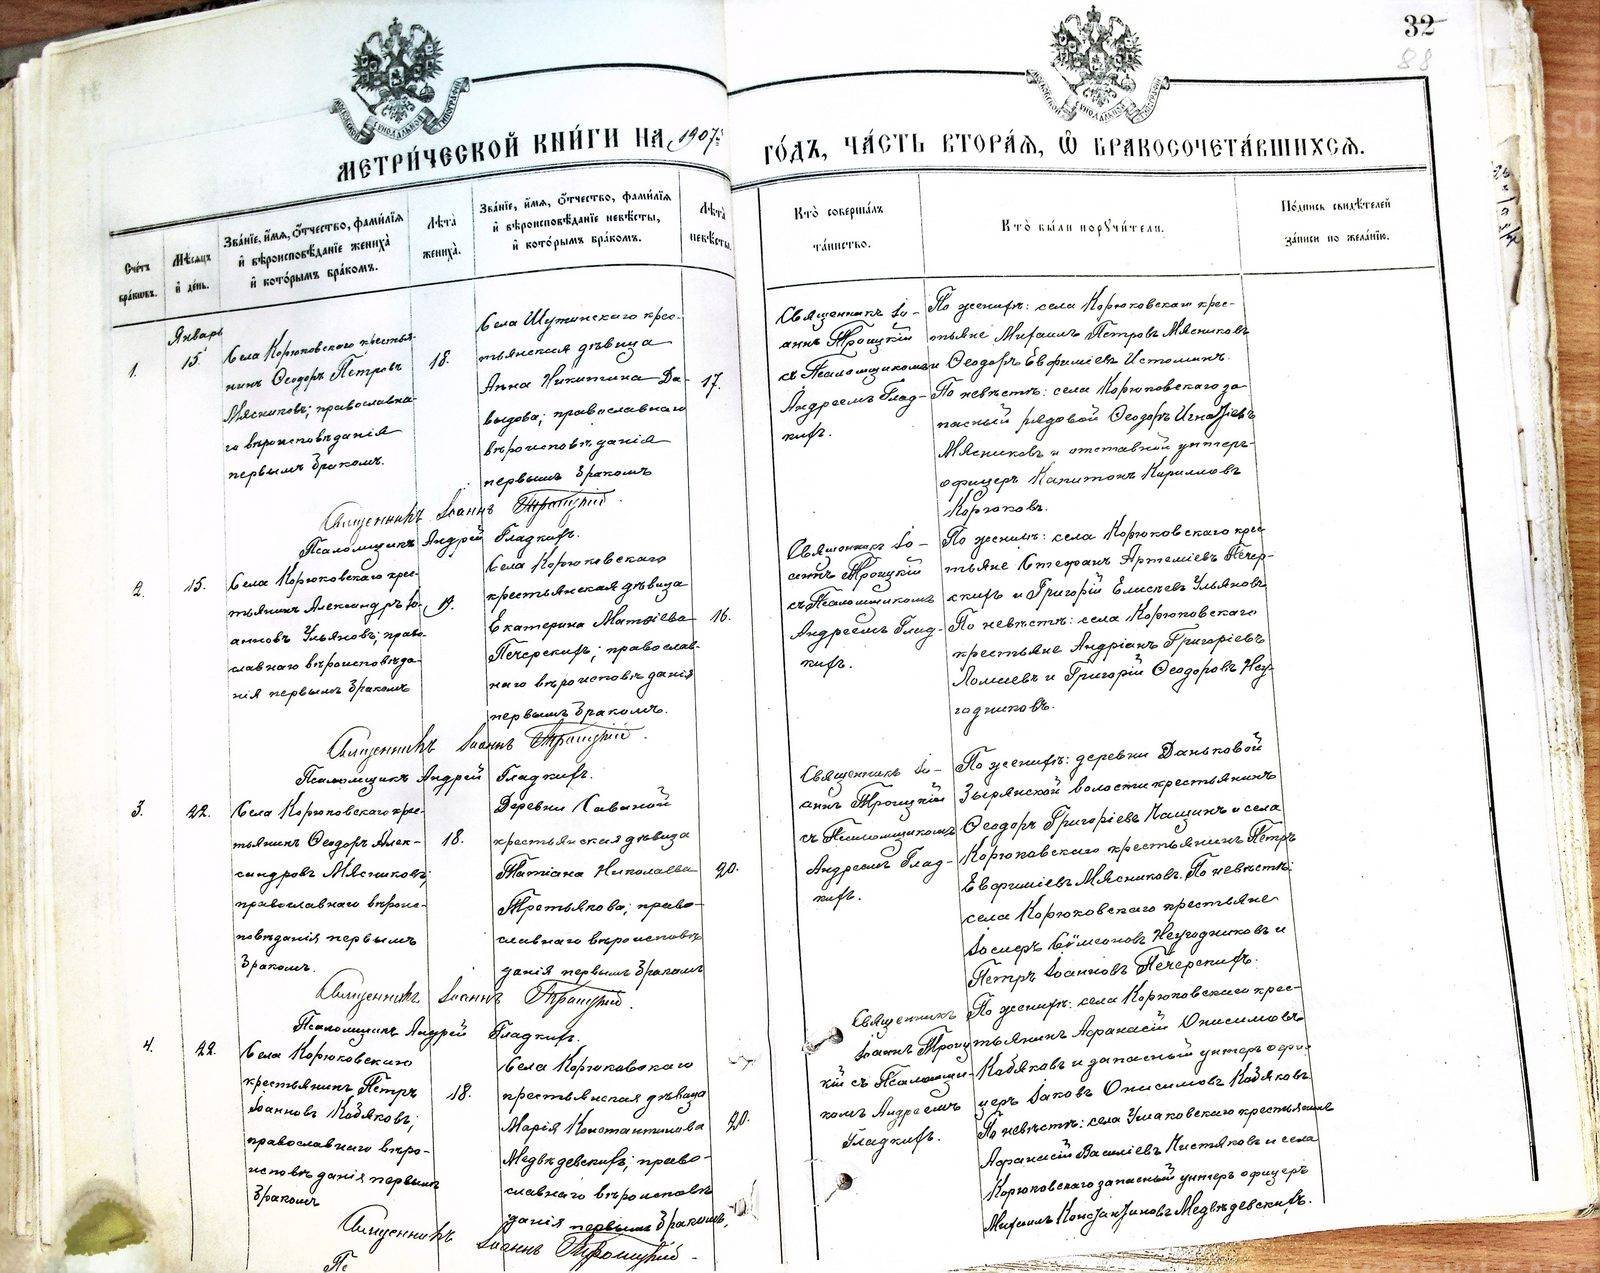 32
88
МЕТРИ́ЧЕСКОЙ КНИ́ГИ НА 1907й
ГО́ДЪ, ЧА́СТЬ ВТОРА́Я, Ѿ БРАКОСОЧЕТА́ВШИХСЯ.
Сче́тъ
бра́ковъ.
Мѣ́сяцъ
и́ де́нь.
Зва́нїе, и́мя, о́тчество, фами́лїя
и́ вѣроисповѣ́данїе жениха̀
и́ кото́рымъ бра́комъ.
Лѣ́та
жениха̀.
Зва́нїе, и́мя, о́тчество, фами́лїя
и́ вѣроисповѣ́данїе невѣ́сты,
и́ кото́рымъ бра́комъ.
Лѣ́та
невѣ́сты.
Кто̀ соверша́лъ
та́инство.
Кто̀ бы́ли порꙋчи́тели.
По́дпись свидѣ́телей
за́писи по жела́нїю.
1.
Январь
15
Села Корюковскаго крестья-
нинъ Ѳеодоръ Петровъ
Мясниковъ; православна-
го вѣроисповѣданія
первымъ бракомъ.
18.
Села Шутинскаго крес-
тьянская дѣвица
Анна Никитина Да-
выдова; православнаго
вѣроисповѣданія
первымъ бракомъ
17.
Священникъ Іо-
аннъ Троицкій
съ Псаломщикомъ
Андреемъ Глад-
кихъ.
По женихѣ: села Корюковскаго крес-
тьяне Михаилъ Петровъ Мясниковъ
и Ѳеодоръ Евфиміевъ Истоминъ.
По невѣстѣ: села Корюковскаго за
пасный рядовой Ѳеодоръ Игнатіевъ
Мясниковъ и отставной унтеръ-
офицеръ Капитонъ Кирилловъ
Корюковъ.
Священникъ Іоаннъ Троицкій.
Псаломщикъ Андрей Гладкихъ.
2.
15.
Села Корюковскаго крес-
тьянинъ Александръ Іо-
анновъ Ульяновъ; право
славнаго вѣроисповѣда-
нія первымъ бракомъ
19.
Села Корюковскаго
крестьянская дѣвица
Екатерина Матѳіева
Печерскихъ; православ-
наго вѣроисповѣданія
первымъ бракомъ.
16.
Священникъ Іо-
аннъ Троицкій
съ Псаломщикомъ
Андреемъ Глад-
кихъ.
По женихѣ: села Корюковскаго крес-
тьяне Стефанъ Артеміевъ Печер-
скихъ и Григорій Елисеевъ Ульяновъ
По невѣстѣ: села Корюковскаго
крестьяне Андріанъ Григоріевъ
и Григорій Ѳеодоровъ Неу-
годниковъ.
Священникъ Іоаннъ Троицкій.
Псаломщикъ Андрей Гладкихъ.
3.
22.
Села Корюковскаго крес-
тьянинъ Ѳеодоръ Алек-
сандровъ Мясниковъ;
православнаго вѣроис-
повѣданія первымъ
бракомъ.
18.
Деревни Савиной
крестьянская дѣвица
Татіана Николаева
Третьякова; право-
славнаго вѣроисповѣ
данія первымъ бракомъ
20.
Священникъ Іо-
аннъ Троицкій
съ Псаломщикомъ
Андреемъ Глад-
кихъ.
По женихѣ: деревни Даньковой
Зырянской волости крестьянинъ
Ѳеодоръ Григоріевъ и села
Корюковскаго крестьянинъ Петръ
Евфиміевъ Мясниковъ. По невѣстѣ:
села Корюковскаго крестьяне
Іосифъ Сѵмеоновъ Неугодниковъ и
Петръ Іоанновъ Печерскихъ.
Священникъ Іоаннъ Троицкій.
Псаломщикъ Андрей Гладкихъ.
4.
22.
Села Корюковскаго
крестьянинъ Петръ
Іоанновъ Кобяковъ;
православнаго вѣро-
исповѣданія первымъ
бракомъ
18.
Села Корюковскаго
крестьянская дѣвица
Марія Константинова
Медвѣдевскихъ; право-
славнаго вѣроисповѣ
данія первымъ бракомъ,
20.
Священникъ
Іоаннъ Троиц
кій съ Псаломщи-
комъ Андреемъ
Гладкихъ.
По женихѣ: села Корюковскаго крес-
тьянинъ Афанасій Онисимовъ
Кобяковъ и запасный унтеръ офи-
церъ Іаковъ Онисимовъ Кобяковъ
По невѣстѣ: села Ушаковскаго крестьянинъ
Афанасій Василіевъ Чистяковъ и села
Корюковскаго запасный унтеръ офицеръ
Михаилъ Константиновъ Медвѣдевскихъ.
Священникъ Іоаннъ Троицкій
Пс